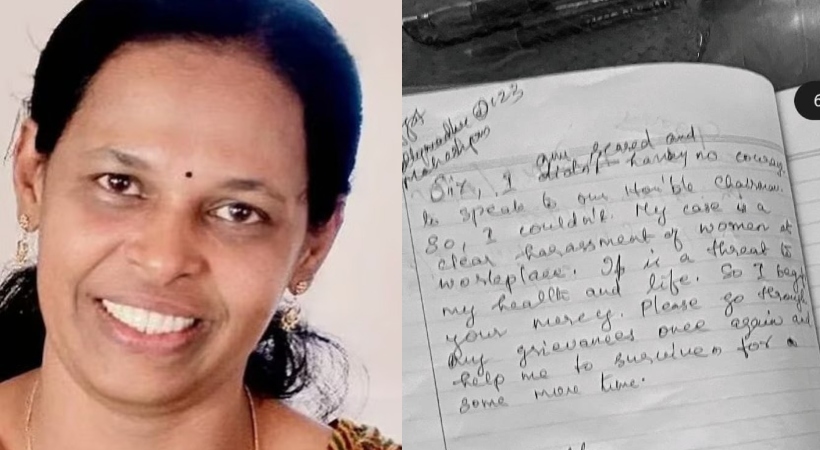 Sir, I am scared and
didn't having no courage
to speak to our Hon'ble Chairman.
So, I couldn't. My case is a
clear harassment of women at
workplace. It is a threat to
my health and life. So I beg
your mercy. Please go through
my grievances once again and
help me to survive for
some more time.
6